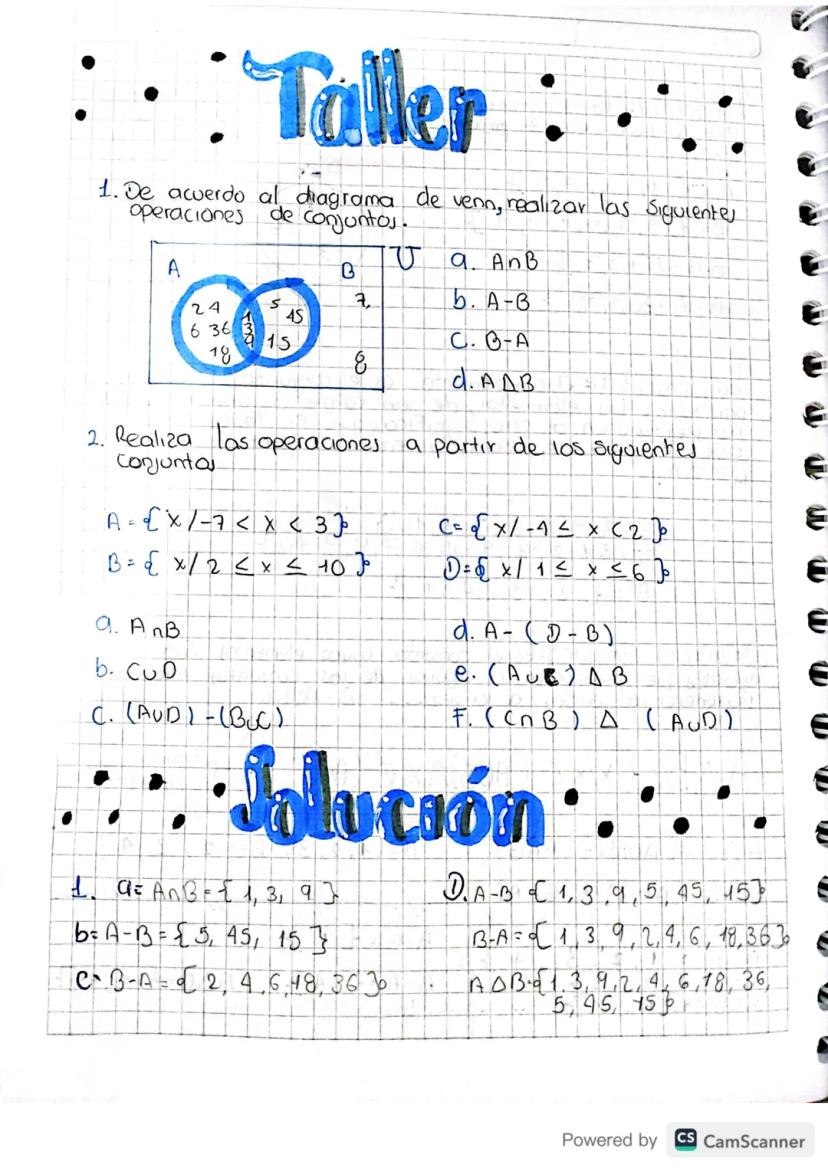 Taller
1. De acuerdo al diagrama de venn, realizar las siguientes
operaciones de conjuntos.
A B U
2 4 1 5 45 7
6 36 3
18 9 15 8
a. A∩B
b. A-B
c. B-A
d. A∆B
2. Realiza las operaciones a partir de los siguientes
conjuntos
A={x/-7 < x < 3}
B={x/ 2 ≤ x ≤ 10}
C={x/ -4 ≤ x < 2}
D={x/ 1 ≤ x ≤ 6}
a. A∩B
b. C∪D
c. (A∪D)-(B∪C)
d. A-(D-B)
e. (A∪C) ∆ B
F. (C∩B) ∆ (A∪D)
Solución
1. a= A∩B={1, 3, 9}
b= A-B={5, 45, 15}
c- B-A={2, 4, 6, 18, 36}
D. A-B {1, 3, 9, 5, 45, 15}
B-A={1, 3, 9, 2, 4, 6, 18, 36}
A∆B={1, 3, 9, 2, 4, 6, 18, 36,
5, 45, 15}
Powered by CS CamScanner